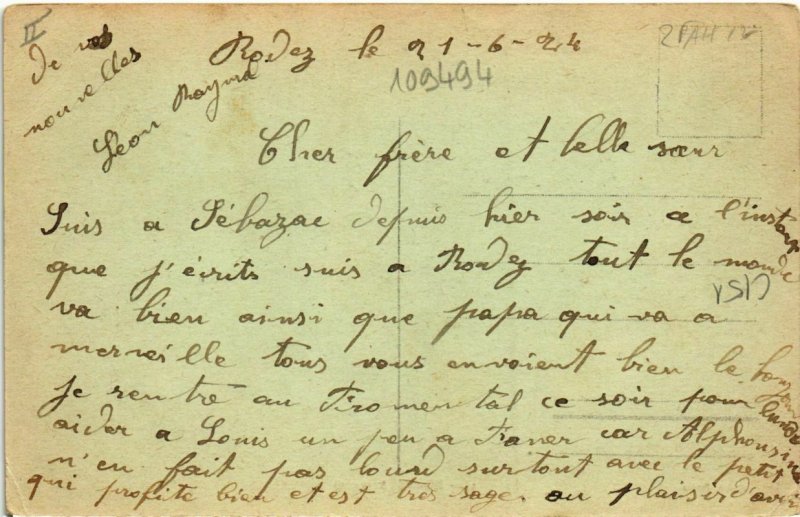 II
Rodez le 21-6-24
109494
Cher frère et belle sœur
Suis a Sébazac depuis hier soir a l'instant
que j'écrits suis a Rodez tout le monde
va bien ainsi que papa qui va a
merveille tous vous envoient bien le bonjour
je rentre au Fromental ce soir pour
aider a Louis un peu a Faner car Alphonsine
n'en fait pas lourd surtout avec le petit
qui profite bien et est très sage. au plaisir d'avoir
De vos
nouvelles
Léon Raynal